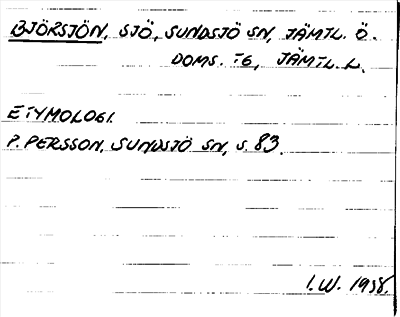 BJÖRSJÖN, SJÖ, SUNDSJÖ SN, JÄMTL. Ö.
DOMS. TG, JÄMTL. L.
ETYMOLOGI.
P. PERSSON, SUNDSJÖ SN, S. 83.
I. W. 1938.